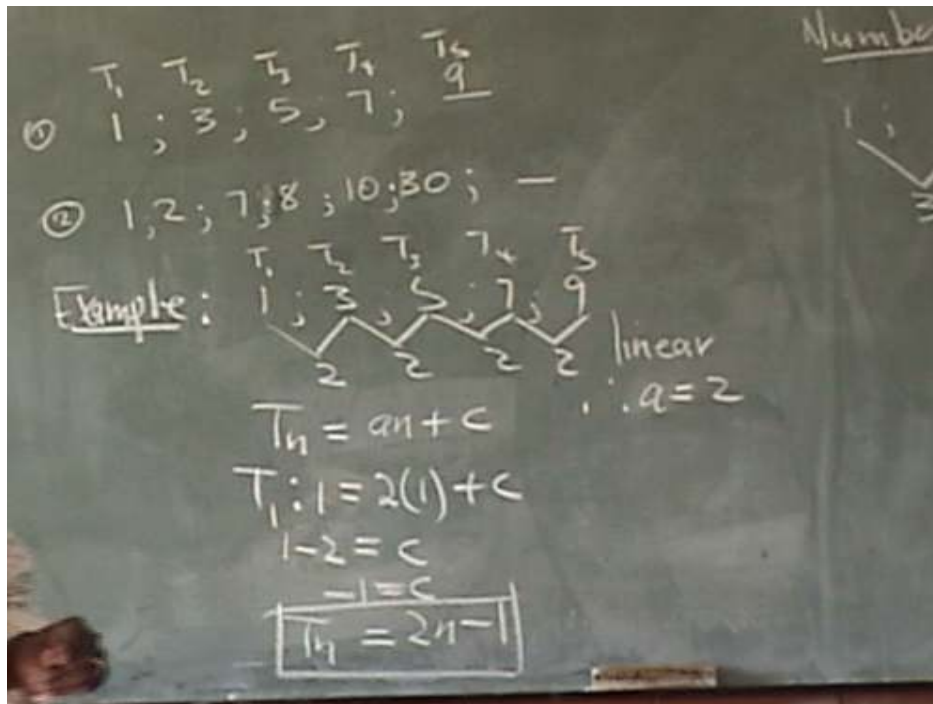 T₁ T₂ T₃ T₄ T₅
① 1 ; 3 ; 5 ; 7 ; 9
② 1 ; 2 ; 7 ; 8 ; 10 ; 30 ; —
T₁ T₂ T₃ T₄ T₅
Example : 1 ; 3 ; 5 ; 7 ; 9
2 2 2 2 linear
∴ a = 2
Tₙ = an + c
T₁ : 1 = 2(1) + c
1 - 2 = c
-1 = c
Tₙ = 2n - 1
Numbe
1 ;
3